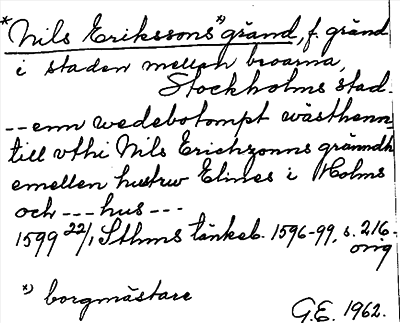 *Nils Erikssons*) gränd, f. gränd
i staden mellan broarna,
Stockholms stad.
--- enn wedebotompt wästhenn
till vthi Nils Erichzonns gränndh
emellen hustrw Elines i Holms
och --- hus ---
1599 22/1, Sthms tänkeb. 1596-99, s. 216.
orig
*) borgmästare
G.E. 1962.